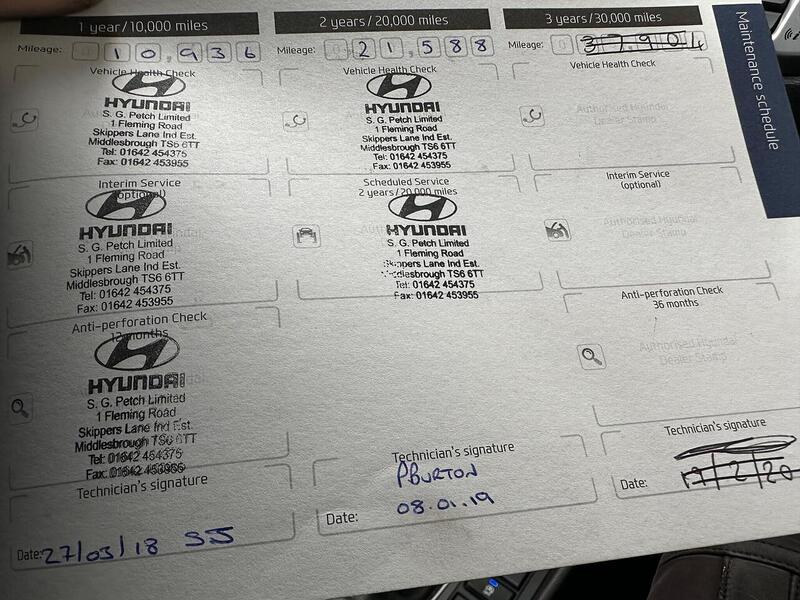 1 year/10,000 miles
Mileage: 0 10,936
Vehicle Health Check
HYUNDAI
S. G. Petch Limited
1 Fleming Road
Skippers Lane Ind Est.
Middlesbrough TS6 6TT
Tel: 01642 454375
Fax: 01642 453955
Interim Service
(optional)
HYUNDAI
S. G. Petch Limited
1 Fleming Road
Skippers Lane Ind Est.
Middlesbrough TS6 6TT
Tel: 01642 454375
Fax: 01642 453955
Anti-perforation Check
12 months
HYUNDAI
S. G. Petch Limited
1 Fleming Road
Skippers Lane Ind Est.
Middlesbrough TS6 6TT
Tel: 01642 454375
Fax: 01642 453955
Technician's signature
Date: 27/03/18 SJ
2 years/20,000 miles
Mileage: 0 21,588
Vehicle Health Check
HYUNDAI
S. G. Petch Limited
1 Fleming Road
Skippers Lane Ind Est.
Middlesbrough TS6 6TT
Tel: 01642 454375
Fax: 01642 453955
Scheduled Service
2 years/20,000 miles
HYUNDAI
S. G. Petch Limited
1 Fleming Road
Skippers Lane Ind Est.
Middlesbrough TS6 6TT
Tel: 01642 454375
Fax: 01642 453955
Technician's signature
P.BURTON
Date: 08.01.19
3 years/30,000 miles
Mileage: 0 37,904
Vehicle Health Check
Authorised Hyundai
Dealer Stamp
Interim Service
(optional)
Authorised Hyundai
Dealer Stamp
Anti-perforation Check
36 months
Authorised Hyundai
Dealer Stamp
Technician's signature
Date: 17/2/20
Maintenance schedule